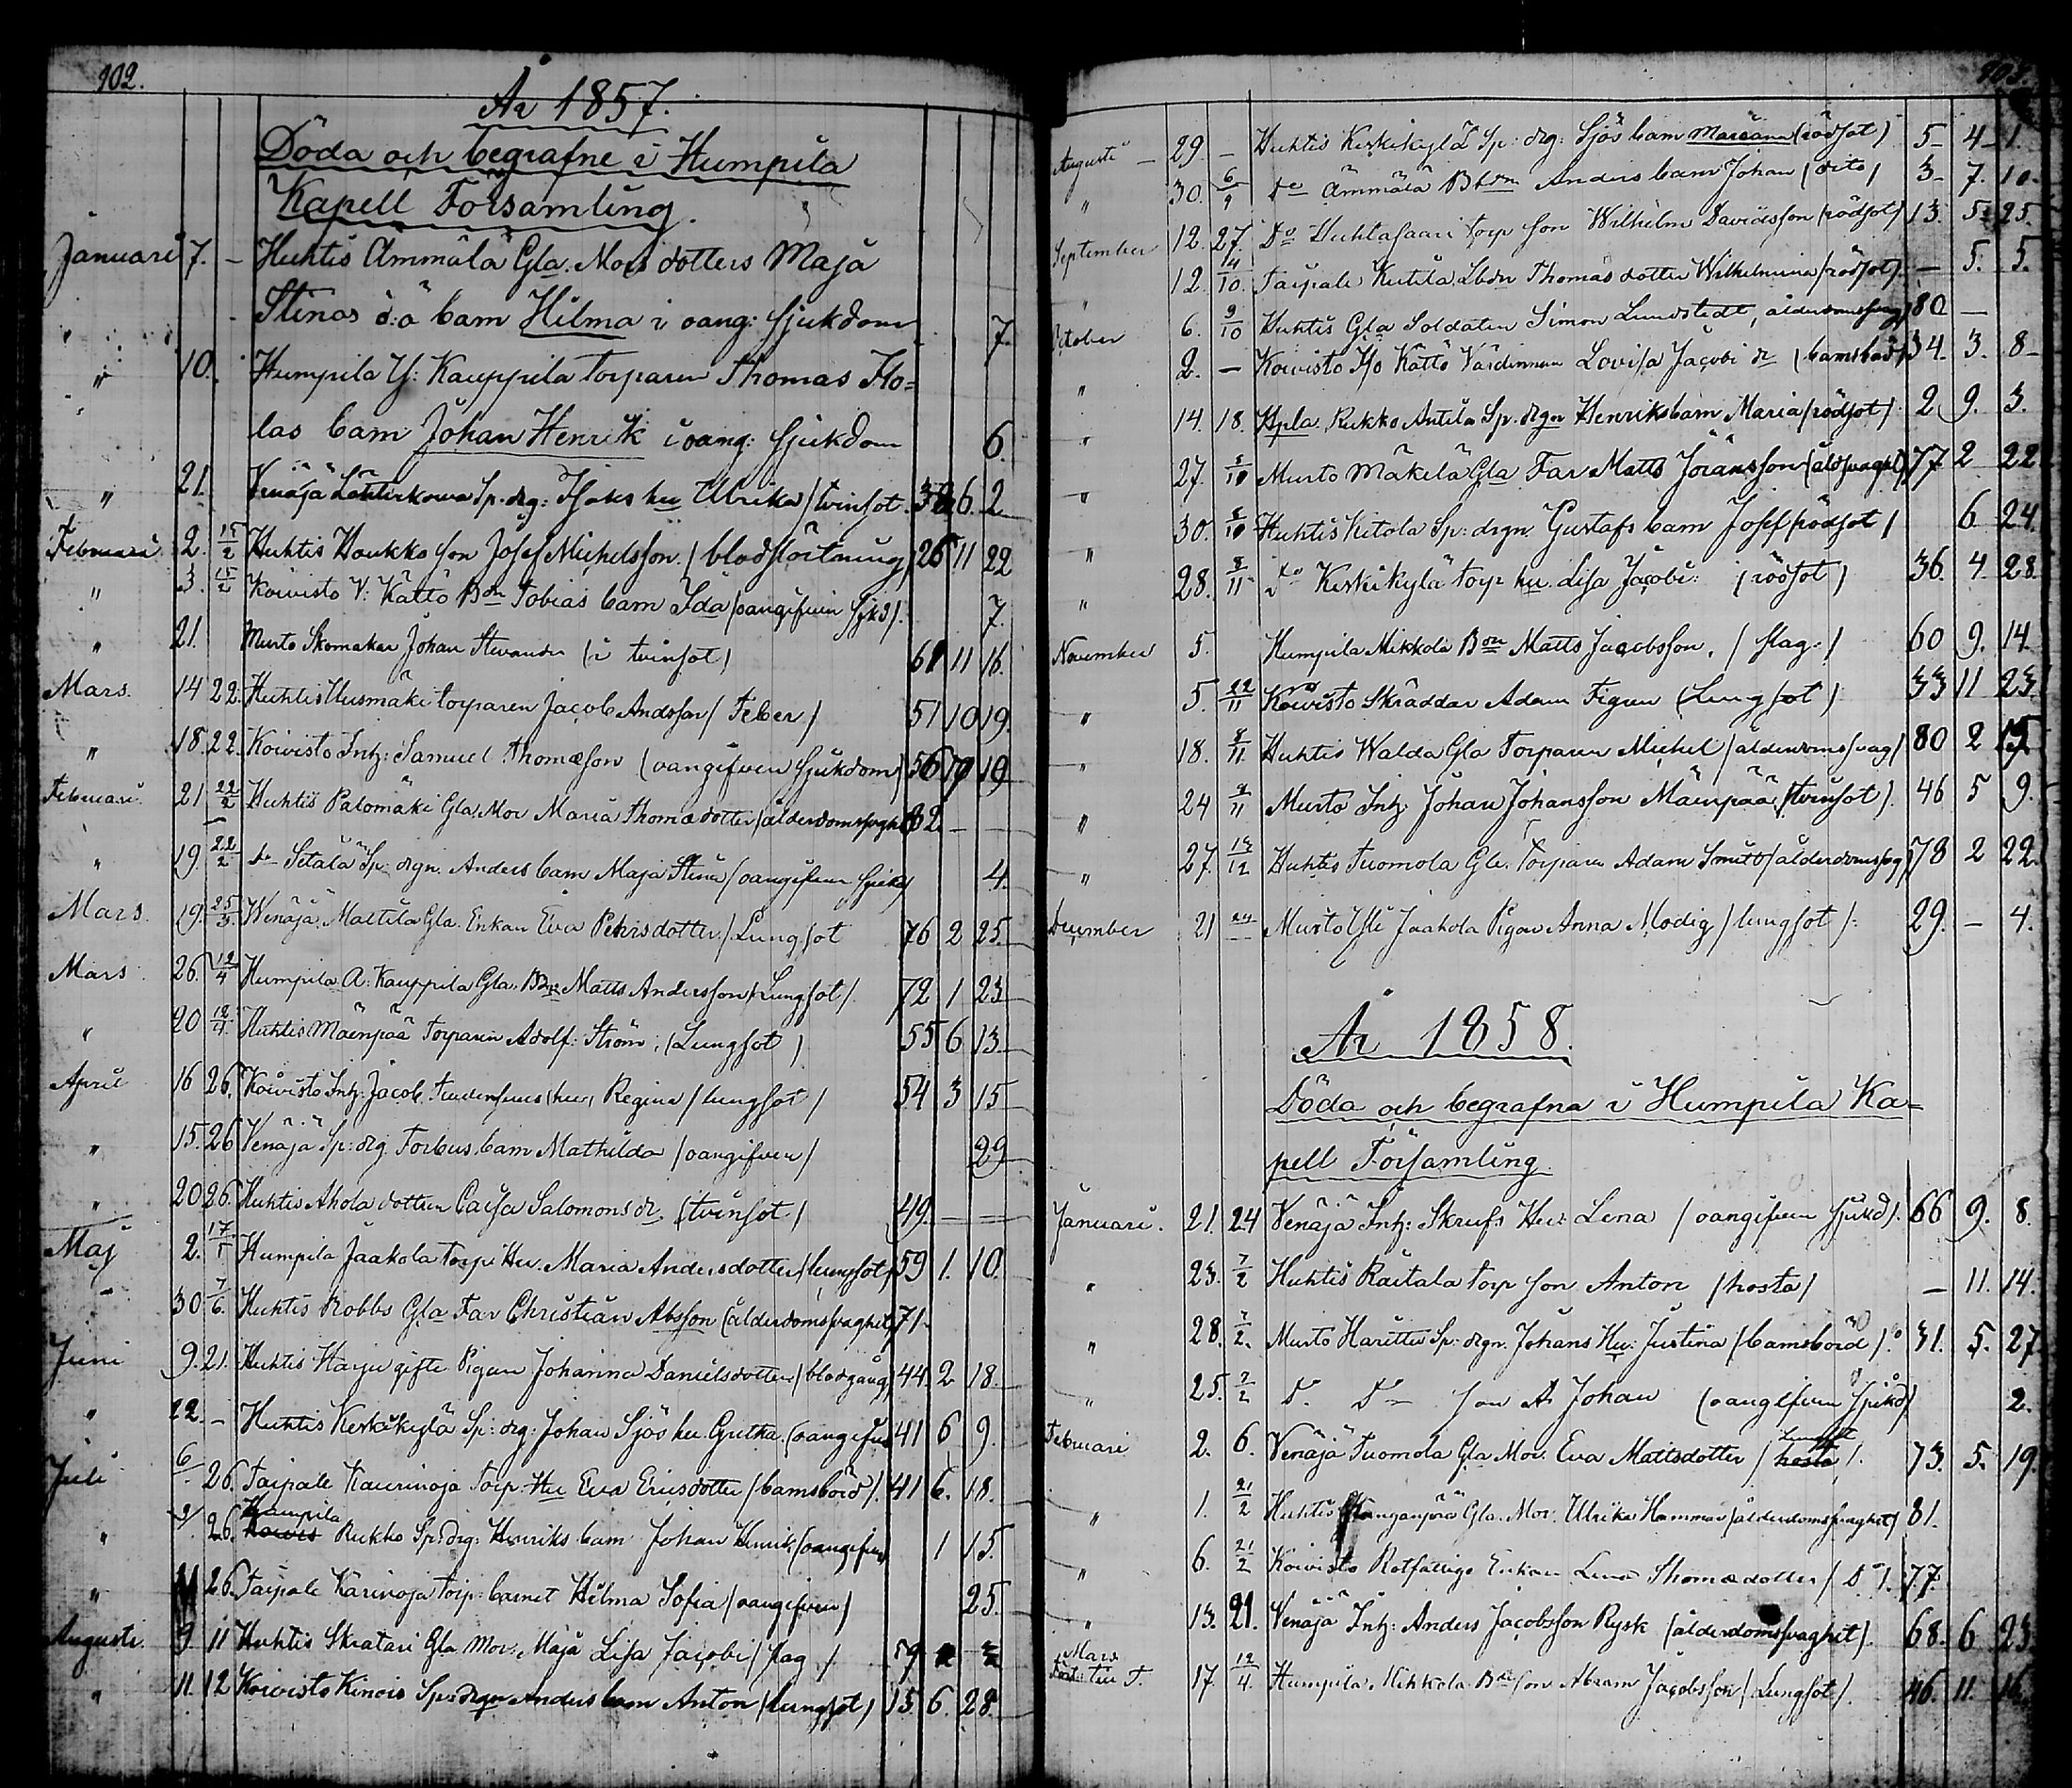 102.
År 1857.
Döda och begrafne i Humpila
Kapell Församling.
Januari 7. – Huhtis Ammälä Gla. Mors dotters Maja
Stinas o:ä barn Hilma i oang: sjukdom 7.
" 10. Humpila Y: Kauppila torparen Thomas Flo=
las barn Johan Henrik i oang: sjukdom 6.
" 21. Venäjä Sp. drg: hu Ulrika / tvinsot 6. 2
Februari 2. 15/2 Huhtis Houkko son Josef Michelsson. / blodstörtning / 26 11 22
" 3. 15/2 Koivisto V: Kättö Bdn Tobias barn Ida / oangifven sjkd /. 7.
" 21. Murto Skomakar Johan (i tvinsot) 61 11 16.
Mars. 14 22. Huhtis Uusmäki torparen Jacob Andsson / Feber / 51 10 19.
" 18. 22. Koivisto Inh: Samuel Thomæson (oangifven sjukdom) 56 10 19
Februari. 21 22/2 Huhtis Palomäki Gla. Mor Maria Thomædotter / ålderdomssvaght 82. – –
" 19. 22/2 do Setälä Sp: drgn. Anders barn Maja Stina / oangifven sjukd / 4.
Mars. 19. 25/3. Wenäjä Mattila Gla. Enkan Eva Pehrsdotter. / Lungsot 76 2 25.
Mars 26. 12/4 Humpila A: Kauppila Gla. Bdn Matts Andersson / Lungsot /. 72 1 23
" 20 12/4. Huhtis Mäenpää Torparen Adolf Ström, (Lungsot) 55 6 13.
April 16 26. Koivisto Inh: Jacob hu, Regina / lungsot / 54 3 15
" 15. 26 Venäjä Sp: drg. Forbus barn Mathilda / oangifven / 29
" 20 26. Huhtis Ahola dottren Caisa Salomons dr (tvinsot) 49. – –
Maj 2. 17/5 Humpila Jaakola torp: Hu. Maria Andersdotter / lungsot / 59 1. 10.
" 30 7/6. Huhtis Robbs Gla Far Christian Absson (ålderdomssvaghet) 71.
Juni 9. 21. Huhtis Harju gifta Pigan Johanna Danielsdotter / blodgång, 44. 2 18.
" 22. – Huhtis Keskikylä Sp: drg: Johan Sjös hu. Gretha. (oangifve 41 6 9.
Juli 6 26. Taipale Kaurinoja Torp: Hu Eva Ericsdotter / barnsbörd /. 41 6. 18.
" 26. Humpila Rukko Sp: drg: Henriks barn Johan Henrik / oangifven 1 15.
" 11 26. Taipale Karinoja torp: barnet Hilma Sofia / oangifven / 25.
Augusti. 9 11 Huhtis Skratari Gla Mor: Maja Lisa Jacobi / slag / 59
" 11. 12 Koivisto Kinois Sp: drgn Anders barn Anton / lungsot / 15 6. 28.
103.
Augusti – 29. – Huhtis Keskikylä Sp: drg: Sjös barn Mariana (rödsot) 5 – 4 – 1.
" 30. 6/9 Do Ämmälä Bbdn Anders barn Johan / dito / 3 – 7. 10.
September 12. 27. Do Huhtasaari torp son Wilhelm Davidsson / rödsot / 13. 5. 25.
" 12. 4/10. Taipale Kutila Lbdn Thomas dotter Wilhelmina / rödsot / – 5. 5.
October 6. 9/10 Huhtis Gla Soldaten Simon Lundstedt, ålderdomssvag / 80 –
" 2. – Koivisto Iso Kättö Värdinnan Lovisa Jacobi dr (barnsbörd) 34. 3. 8 –
" 14. 18. Hpla Rukko Antila Sp. drgn Henriks barn Maria / rödsot /. 2 9. 3.
" 27. 8/10 Murto Mäkilä Gla Far Matts Jöransson (åldsvaght) 77. 2 22
" 30. 8/10 Huhtis Kitola Sp: drgn. Gustafs barn Josef / rödsot / 6 24.
" 28. 8/11 do Keskikylä torp hu. Lisa Jacobi: / rödsot / 36. 4. 28.
November 5. Humpila Mikkola Bon Matts Jacobsson, / slag. / 60 9. 14.
" 5. 22/11 Koivisto Skräddar Adam Figren (Lungsot) 33 11 23.
" 18. 8/11. Huhtis Walda Gla Torparen Michel / ålderdomssvag / 80 2
" 24 11 Murto Inh: Johan Johansson Mäenpää / tvinsot /. 46 5 9.
" 27. 13/12 Huhtis Tuomola Gla. Torparen Adam Smitt / ålderdomssvg / 78 2 22.
December 21 Murto Ylli Jaakola Pigan Anna Modig / lungsot /. 29. – 4.
År 1858.
Döda och begrafna i Humpila Ka=
pell Församling.
Januari. 21. 24 Venäjä Inh: Skrufs Hu: Lena / oangifven sjukd /. 66 9. 8.
" 23. 7/2 Huhtis Raitala torp son Anton / hosta / – 11. 14.
" 28. 7/2. Murto Haritta Sp: drgn. Johans Hu: Justina / barnsbörd /. 31. 5. 27
" 25. 7/2 Do Do son A Johan (oangifven sjukd) 2.
Februari 2. 6. Venäjä Tuomola Gla Mor. Eva Mattsdotter / hosta /. 73. 5. 19.
" 1. 21/2 Huhtis Gla. Mor. Ulrika Hammar / ålderdomssvaghet / 81.
" 6. 21/2 Koivisto Rotfattiga Enkan Lena Thomædotter / Do /. 77.
" 13. 21. Venäjä Inh: Anders Jacobsson Rysk (ålderdomssvaghet). 68. 6 23.
Mars 17 12/4. Humpila Mikkola Bdn son Abram Jacobsson / Lungsot /. 46. 11. 16.